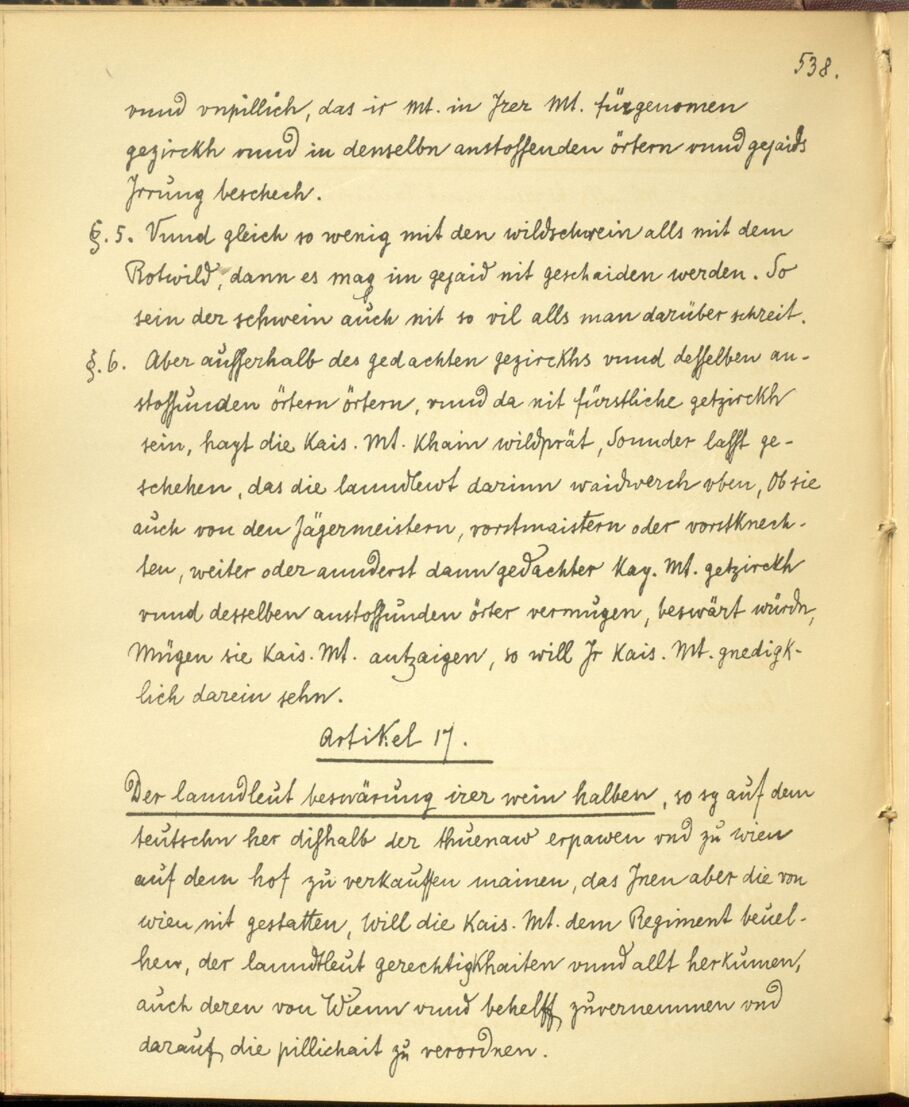 538.
vnnd vnpillich, das ir Mt. in Jrer Mt. fürgenomen
gezirckh vnnd in denselbn anstossenden örtern vnnd gejaids
Jrrung beschech.
§. 5. Vnnd gleich so wenig mit den wildschwein alls mit dem
Rotwild, dann es mag im gejaid nit geschaiden werden. So
sein der schwein auch nit so vil alls man darüber schreit.
§. 6. Aber ausserhalb des gedachten gezirckhs vnnd desselben an-
stossunden örtern örtern, vnnd da nit fürstliche getzirckh
sein, hayt die Kais. Mt. Khain wildprät, Sonnder lasst ge-
schehen, das die lanndlewt darinn waidwerch vben, Ob sie
auch von den Jägermeistern, vorstmaistern oder vorstknech-
ten, weiter oder annderst dann gedachter Kay. Mt. getzirckh
vnnd desselben anstossunden örter vermugen, beswärt würdn,
Mügen sie Kais. Mt. antzaigen, so will Jr Kais. Mt. gnedigk-
lich darein sehn.
Artikel 17.
Der lanndleut beswärung irer wein halben, so sy auf dem
teutschn her disshalb der thuenaw erpawen vnd zu wien
auf dem hof zu verkauffen mainen, das Jnen aber die von
wien nit gestatten, Will die Kais. Mt. dem Regiment beuel-
hen, der lanndtleut gerechtigkhaiten vnnd allt herkumen,
auch deren von Wienn vnnd behelff zuvernemmen vnd
darauf die pillichait zu verordnen.